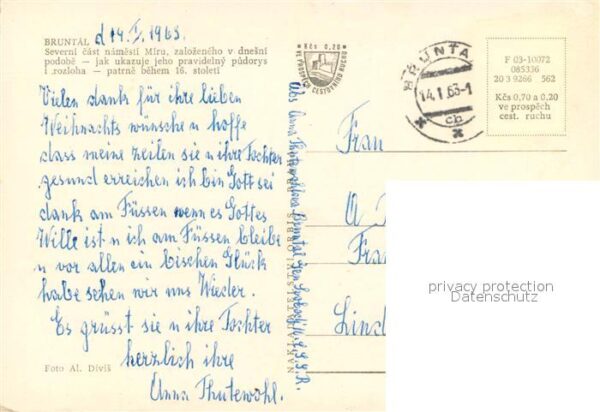 BRUNTÁL d 14.I. 1965.
Severní část náměstí Míru, založeného v dnešní
podobě — jak ukazuje jeho pravidelný půdorys
i rozloha — patrně během 16. století
Vielen dank für ihre lieben
Weihnachts wünsche u hoffe
dass meine zeilen sie u ihre Tochter
gesund erreichen ich bin Gott sei
dank am Füssen wenn es Gottes
Wille ist u ich am Füssen bleibe
u vor allen ein bischen Glück
habe sehen wir uns Wieder.
Es grüsst sie u ihre Tochter
herzlich ihre
Anna
Foto Al. Diviš
Kčs 0,20
VE PROSPĚCH CESTOVNÍHO RUCHU
Anna Bruntál
BRUNTÁL
14.1.65-1
cb
F 03-10072
085336
20 3 9266 562
Kčs 0,70 a 0,20
ve prospěch
cest. ruchu
Frau
Lind
privacy protection
Datenschutz